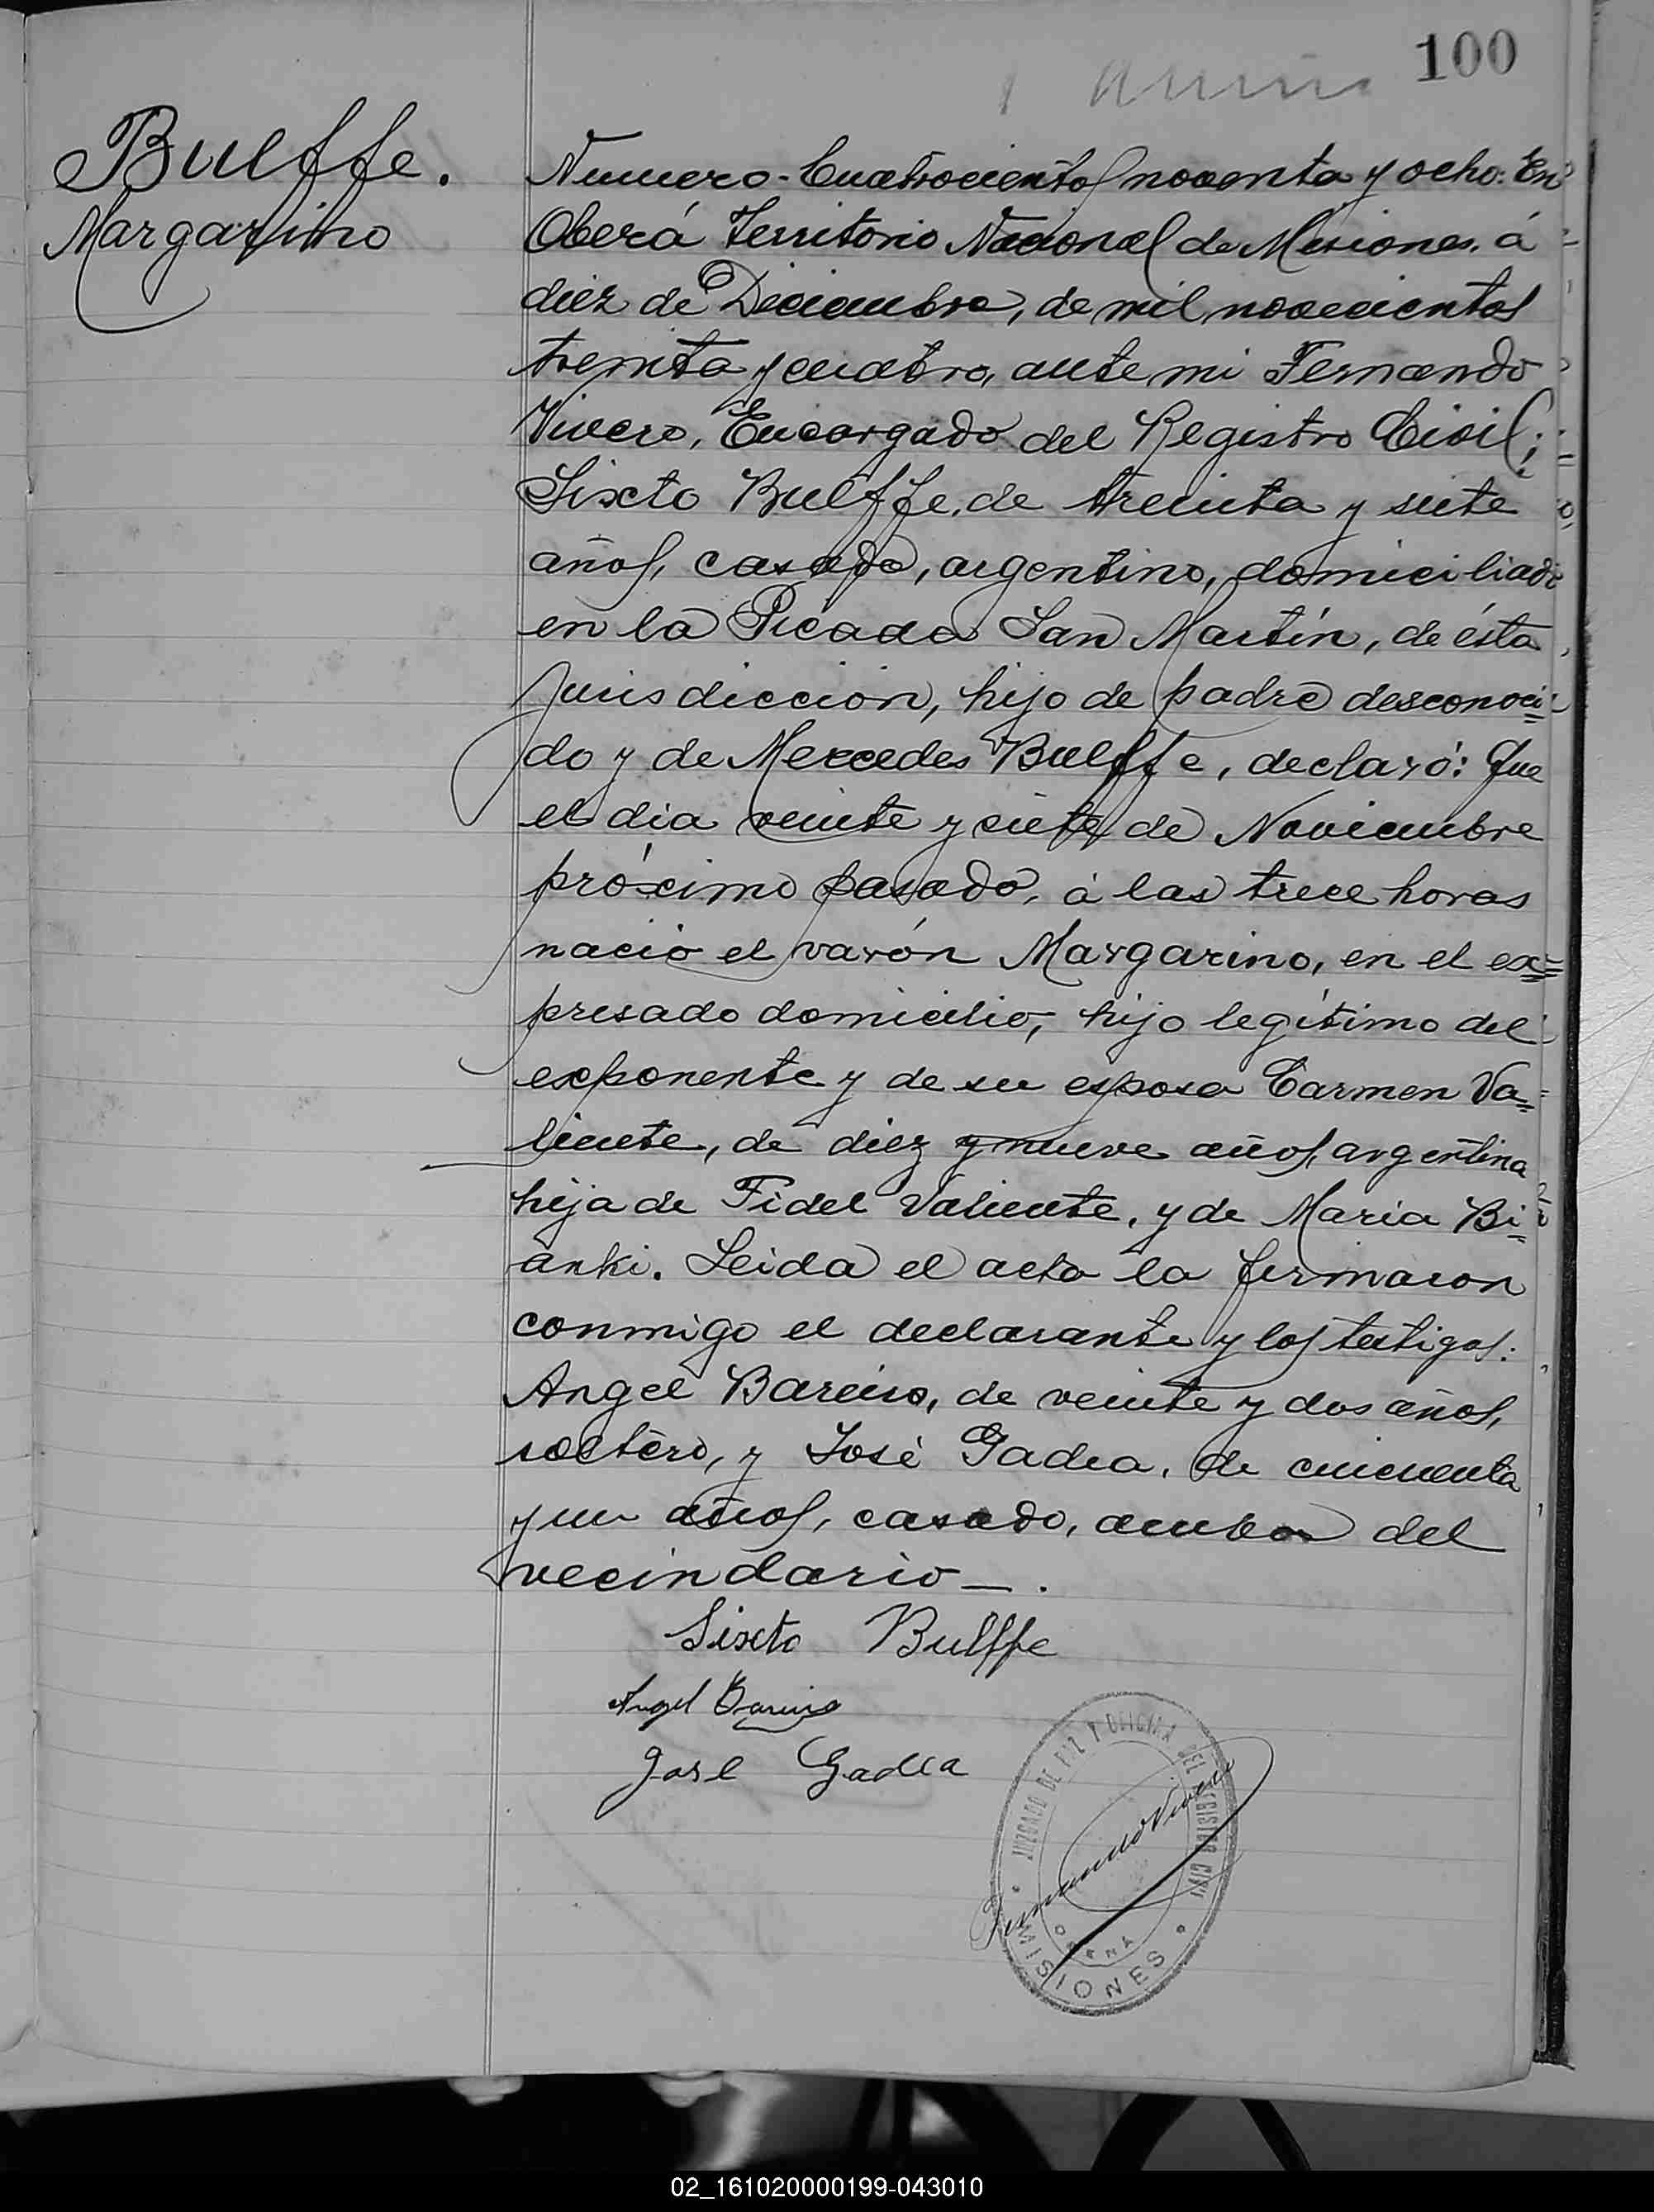 100
Bulffe.
Margarino
Numero-Cuatrocientos noventa y ocho. En
Oberá Territorio Nacional de Misiones, á
diez de Diciembre, de mil novecientos
treinta y cuatro, ante mi Fernando
Vivero, Encargado del Registro Civil;
Sixto Bulffe, de treinta y siete
años, casado, argentino, domiciliado
en la Picada San Martín, de ésta
jurisdiccion, hijo de padre desconoci=
do y de Mercedes Bulffe, declaró: Que
el dia veinte y siete de Noviembre
próximo pasado, á las trece horas
nació el varón Margarino, en el ex=
presado domicilio, hijo legítimo del
exponente y de su esposa Carmen Va=
liente, de diez y nueve años, argentina
hija de Fidel Valiente, y de Maria Bi=
anki. Leida el acta la firmaron
conmigo el declarante y los testigos:
Angel Bareiro, de veinte y dos años,
soltero, y José Gadea, de cincuenta
y un años, casado, ambos del
vecindario_.
Sixto Bulffe
Angel Bareiro
José Gadea
JUZGADO DE PAZ Y OFICINA DEL REGISTRO CIVIL
Fernando Vivero
OBERÁ
MISIONES
02_161020000199-043010